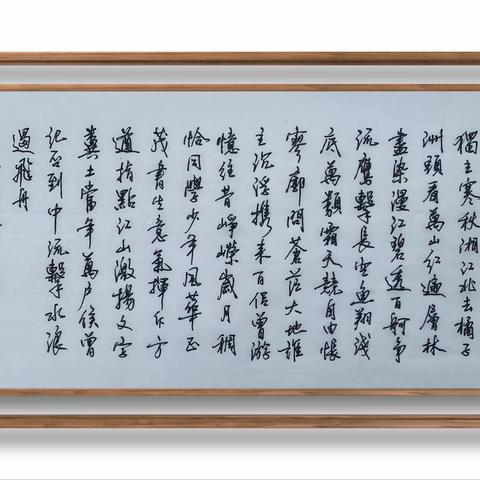 獨立寒秋湘江北去橘子
洲頭看萬山红遍層林
盡染漫江碧透百舸争
流鷹擊長空魚翔淺
底萬類霜天競自由悵
寥廓問蒼茫大地誰
主沉浮携来百侣曾游
憶往昔崢嶸歲月稠
恰同學少年風華正
茂書生意氣揮斥方
遒指點江山激揚文字
糞土當年萬户侯曾
記否到中流擊水浪
遏飛舟